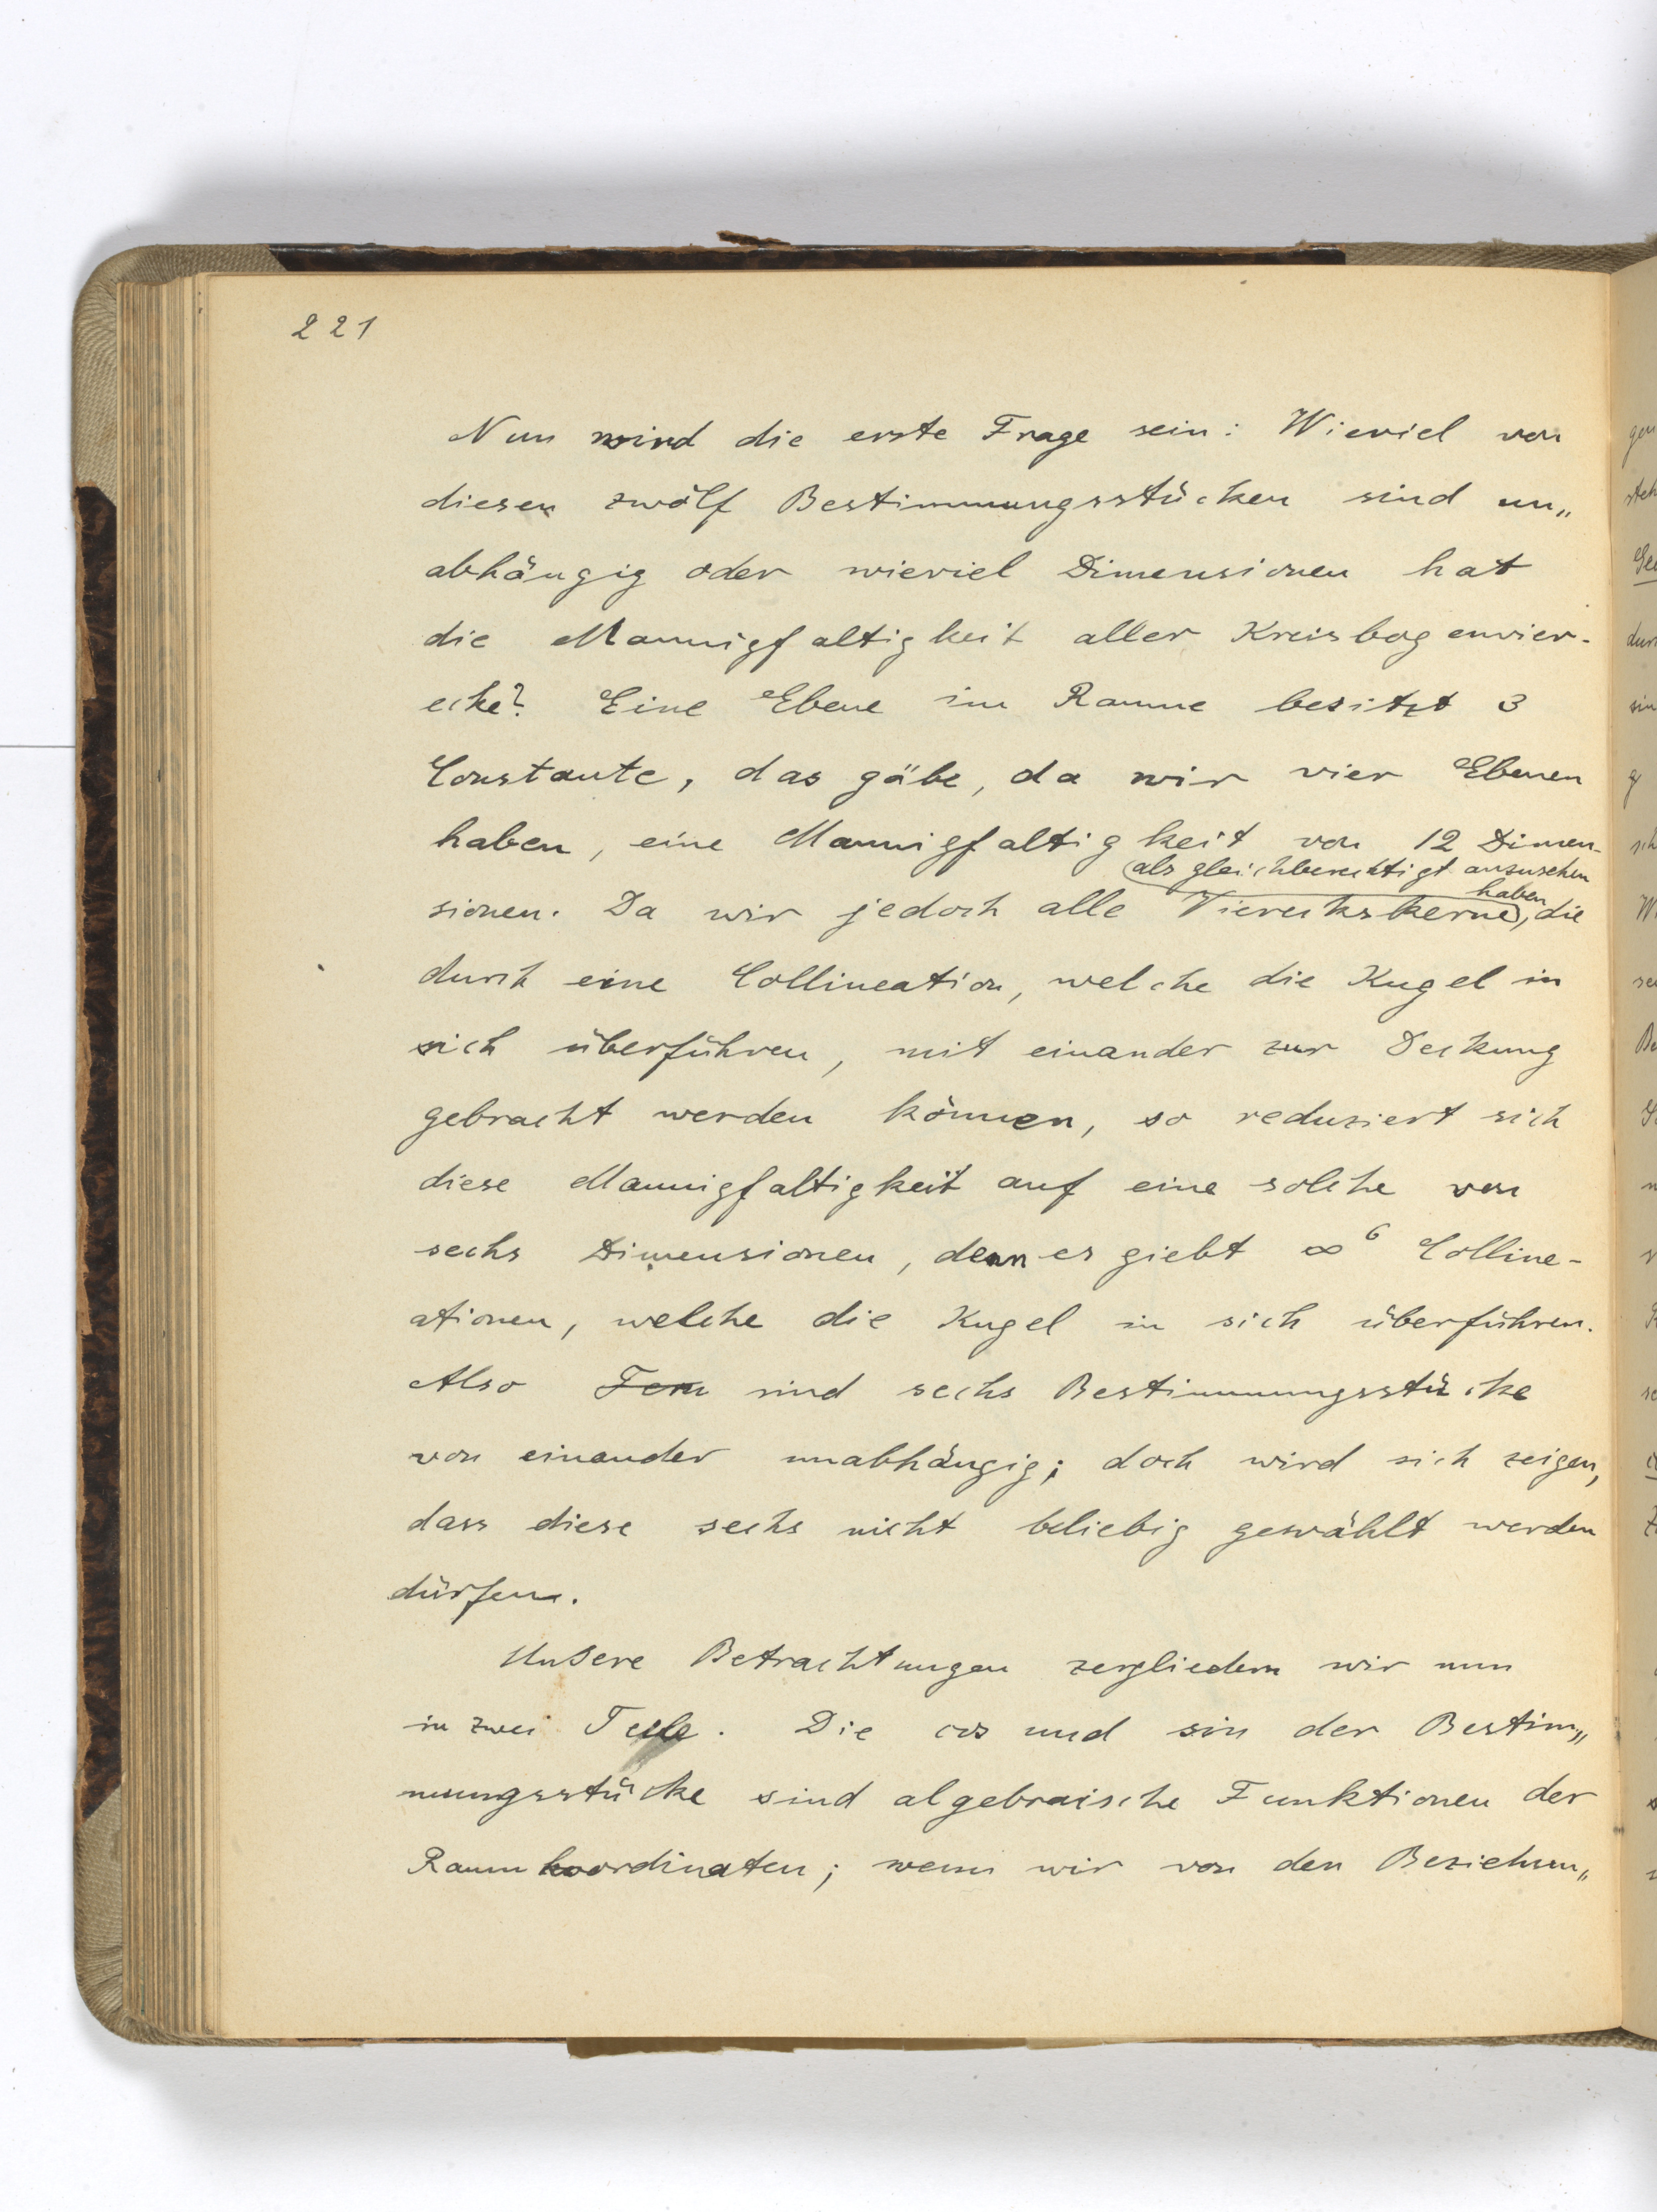 221
Nun wird die erste Frage sein: Wieviel von
diesen zwölf Bestimmungsstücken sind un„
abhängig oder wieviel Dimensionen hat
die Mannigfaltigkeit aller Kreisbogenvier-
ecke? Eine Ebene im Raume besitzt 3
Constante, das gäbe, da wir vier Ebenen
haben, eine Mannigfaltigkeit von 12 Dimen-
als gleichberechtigt anzusehen
haben
sionen. Da wir jedoch alle Viereckskerne, die
durch eine Collineation, welche die Kugel in
sich überführen, mit einander zur Deckung
gebracht werden können, so reduziert sich
diese Mannigfaltigkeit auf eine solche von
sechs Dimensionen, denn es giebt ∞⁶ Colline-
ationen, welche die Kugel in sich überführen.
Also sind sechs Bestimmungsstücke
von einander unabhängig; doch wird sich zeigen,
dass diese sechs nicht beliebig gewählt werden
dürfen.
Unsere Betrachtungen zergliedern wir nun
in zwei Teile. Die cos und sin der Bestim„
mungsstücke sind algebraische Funktionen der
Raumkoordinaten; wenn wir von den Beziehun„